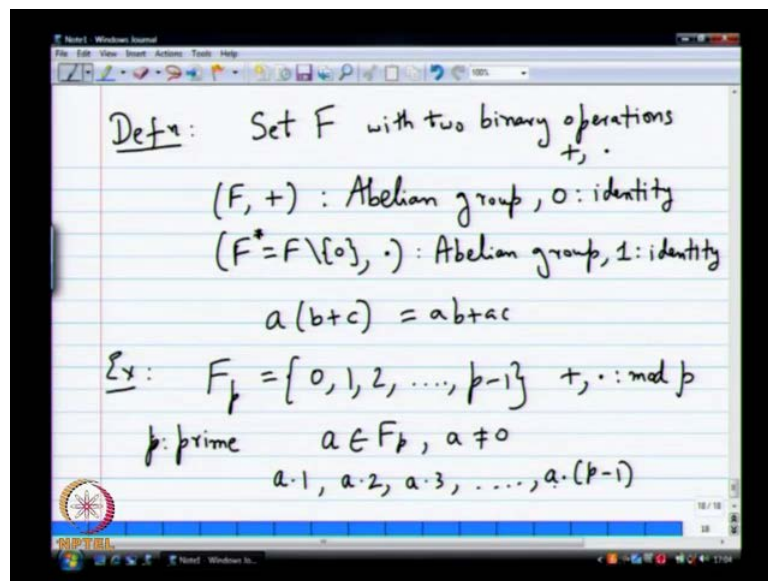 Note1 - Windows Journal
File Edit View Insert Actions Tools Help
100%
Defn: Set F with two binary operations
+, ·
(F, +) : Abelian group, 0: identity
(F* = F \ {0}, ·) : Abelian group, 1: identity
a(b+c) = ab+ac
Ex: F_p = {0, 1, 2, ...., p-1} +, · : mod p
p: prime a ∈ F_p, a ≠ 0
a·1, a·2, a·3, ....., a·(p-1)
18 / 18
18
NPTEL
Note1 - Windows Jo...
17:04